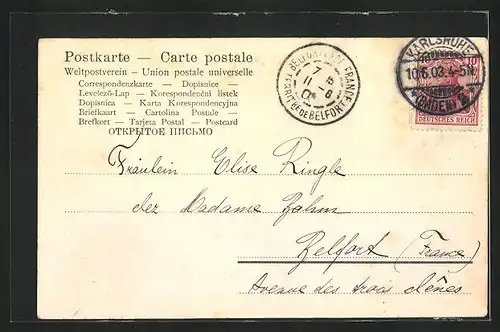 Postkarte — Carte postale
Weltpostverein — Union postale universelle
Correspondenzkarte — Dopisnice —
Levelező-Lap — Korespondenční listek
Dopisnica — Karta Korespondencyjna
Briefkaart — Cartolina Postale —
Brefkort — Tarjeta Postal — Postcard
ОТКРЫТОЕ ПИСЬМО
BELFORT FRANCE
TERRIT. RE DE BELFORT
KARLSRUHE
10.6.03.4-5N
(BADEN)
DEUTSCHES REICH
Fräulein Elise Ringle
Madame Bohm
Belfort (France)
Avenue des trois chênes